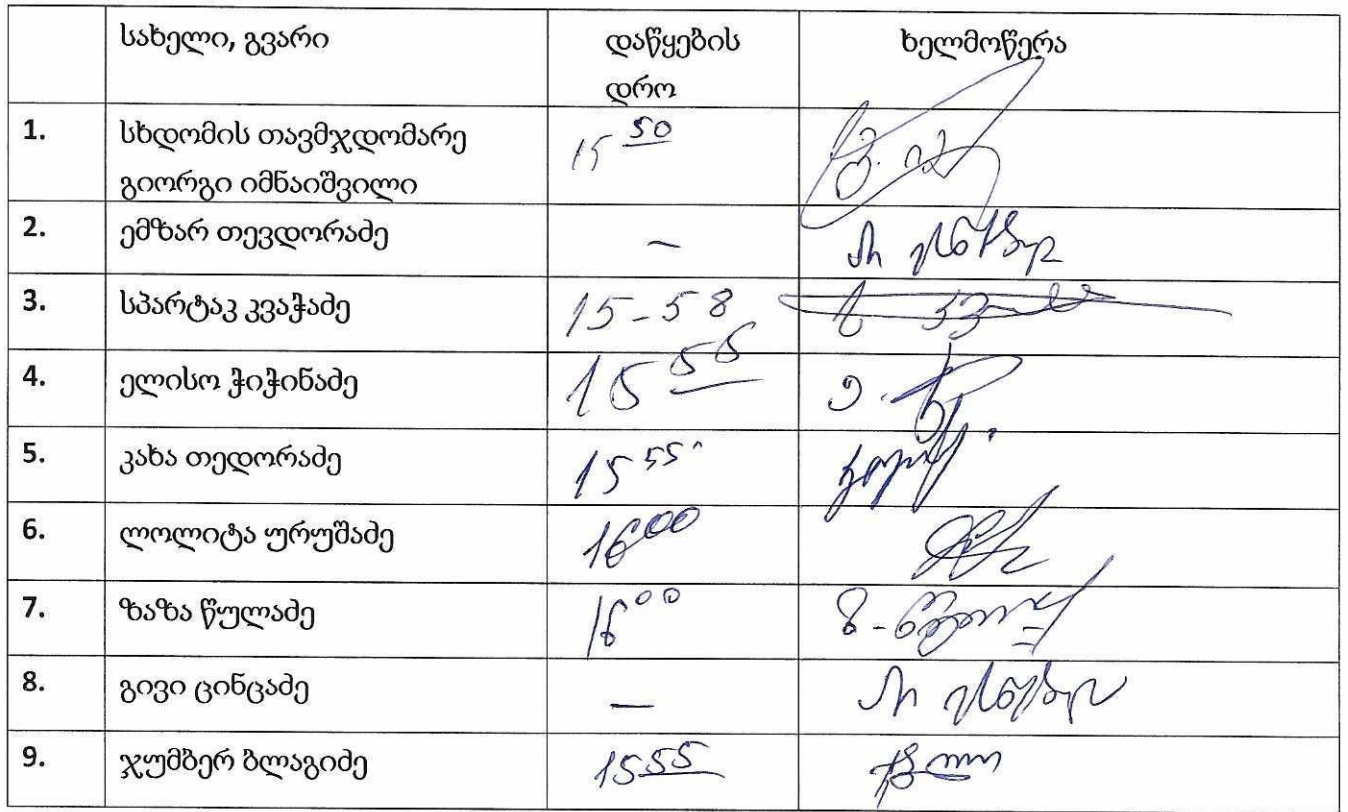 სახელი, გვარი დაწყების ხელმოწერა
დრო
1. სხდომის თავმჯდომარე 15 50
გიორგი იმნაიშვილი
2. ემზარ თევდორაძე — არ ესწრება
3. სპარტაკ კვაჭაძე 15-58
4. ელისო ჭიჭინაძე 15 55
5. კახა თედორაძე 15 55
6. ლოლიტა ურუშაძე 16 00
7. ზაზა წულაძე 16 00
8. გივი ცინცაძე — არ ესწრება
9. ჯუმბერ ბლაგიძე 15 55